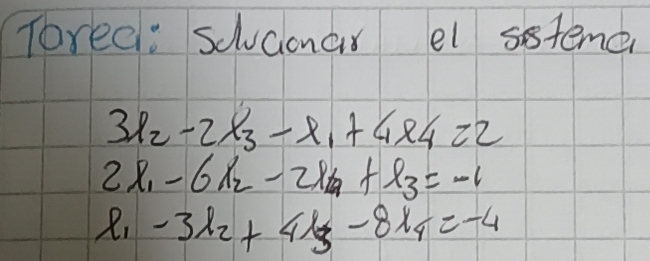 Tarea: Solucionar el sistema
3x₂ - 2x₃ - x₁ + 4x₄ = 2
2x₁ - 6x₂ - 2x₄ + x₃ = -1
x₁ - 3x₂ + 4x₃ - 8x₄ = -4